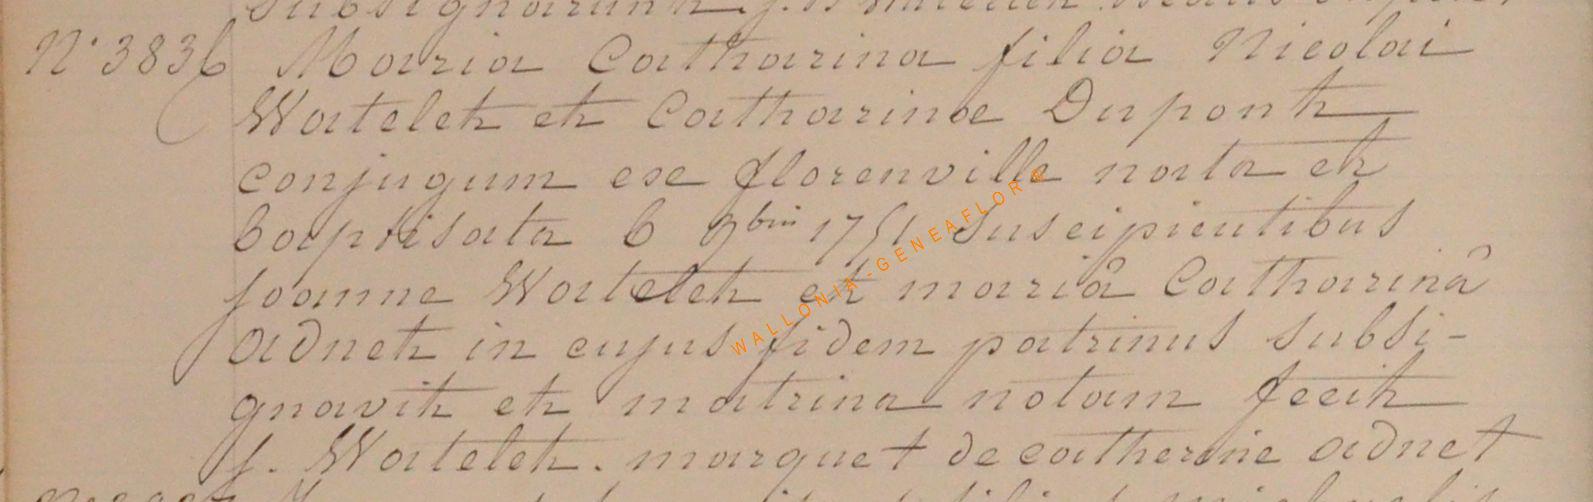 subsignarunt
N° 3836 Maria Catharina filia Nicolai
Watelet et Catharinae Dupont
conjugum ex florenville nata et
baptisata 6 9bris 1751 Suscipientibus
joanne Watelet et mariâ Catharinâ
adnet in cujus fidem patrinus subsi-
gnavit et matrina notam fecit
j. Watelet. marque + de catherine adnet
WALLONIA-GENEAFLOR®